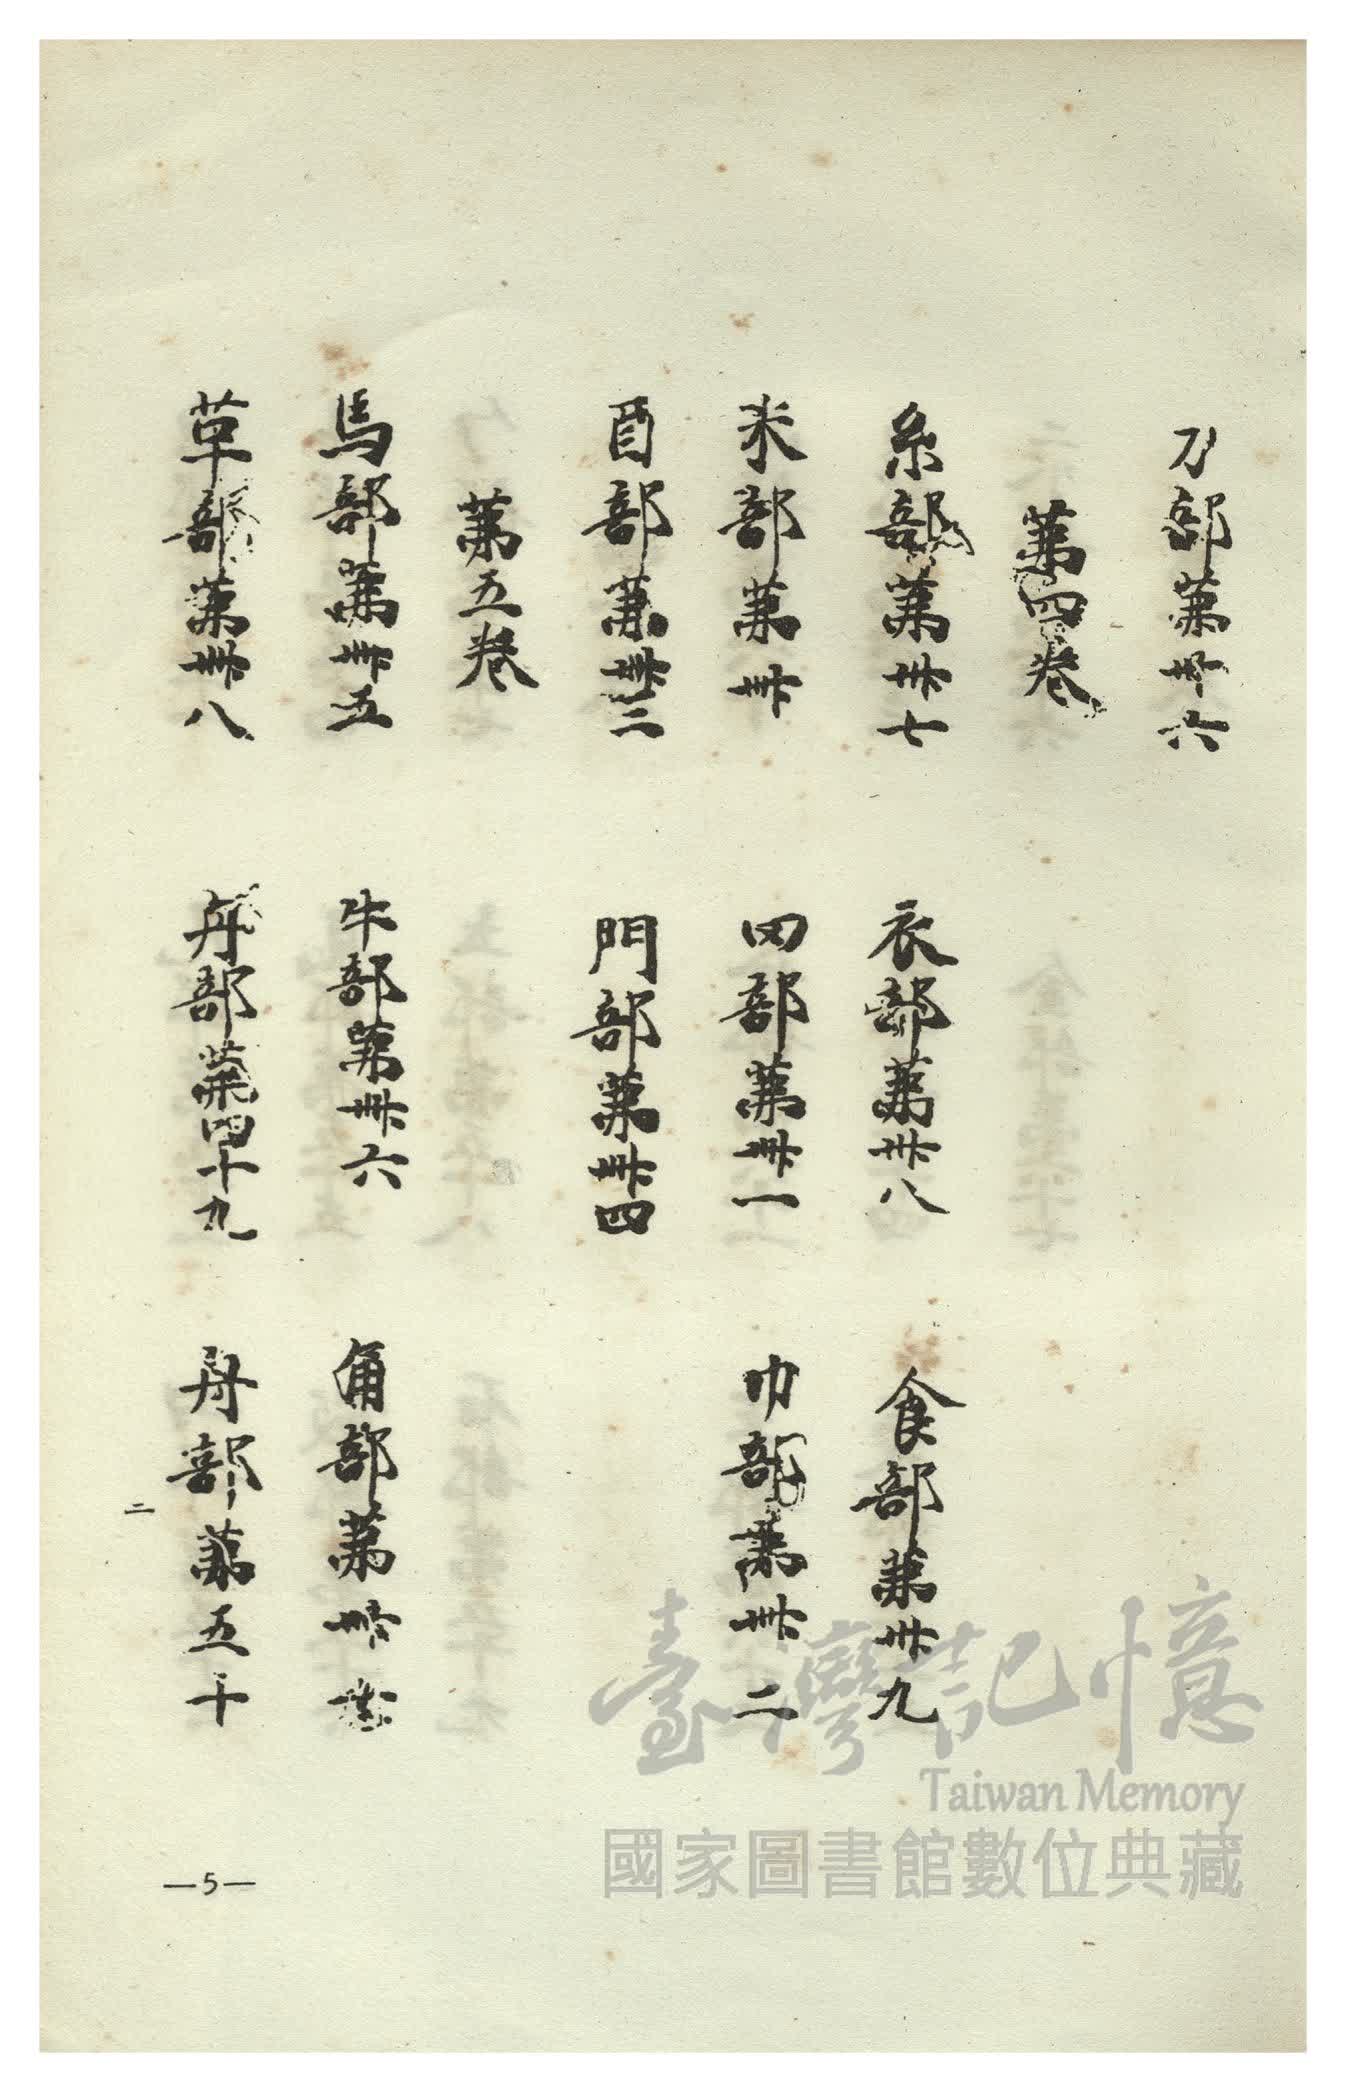 刀部第卅六
第四卷
糸部第卅七 衣部第卅八 食部第卅九
米部第卌 罒部第卌一 巾部第卌二
酉部第卌三 門部第卌四
第五卷
馬部第卌五 牛部第卌六 角部第卌七
革部第卌八 丹部第四十九 舟部第五十
二
—5—
臺灣記憶
Taiwan Memory
國家圖書館數位典藏